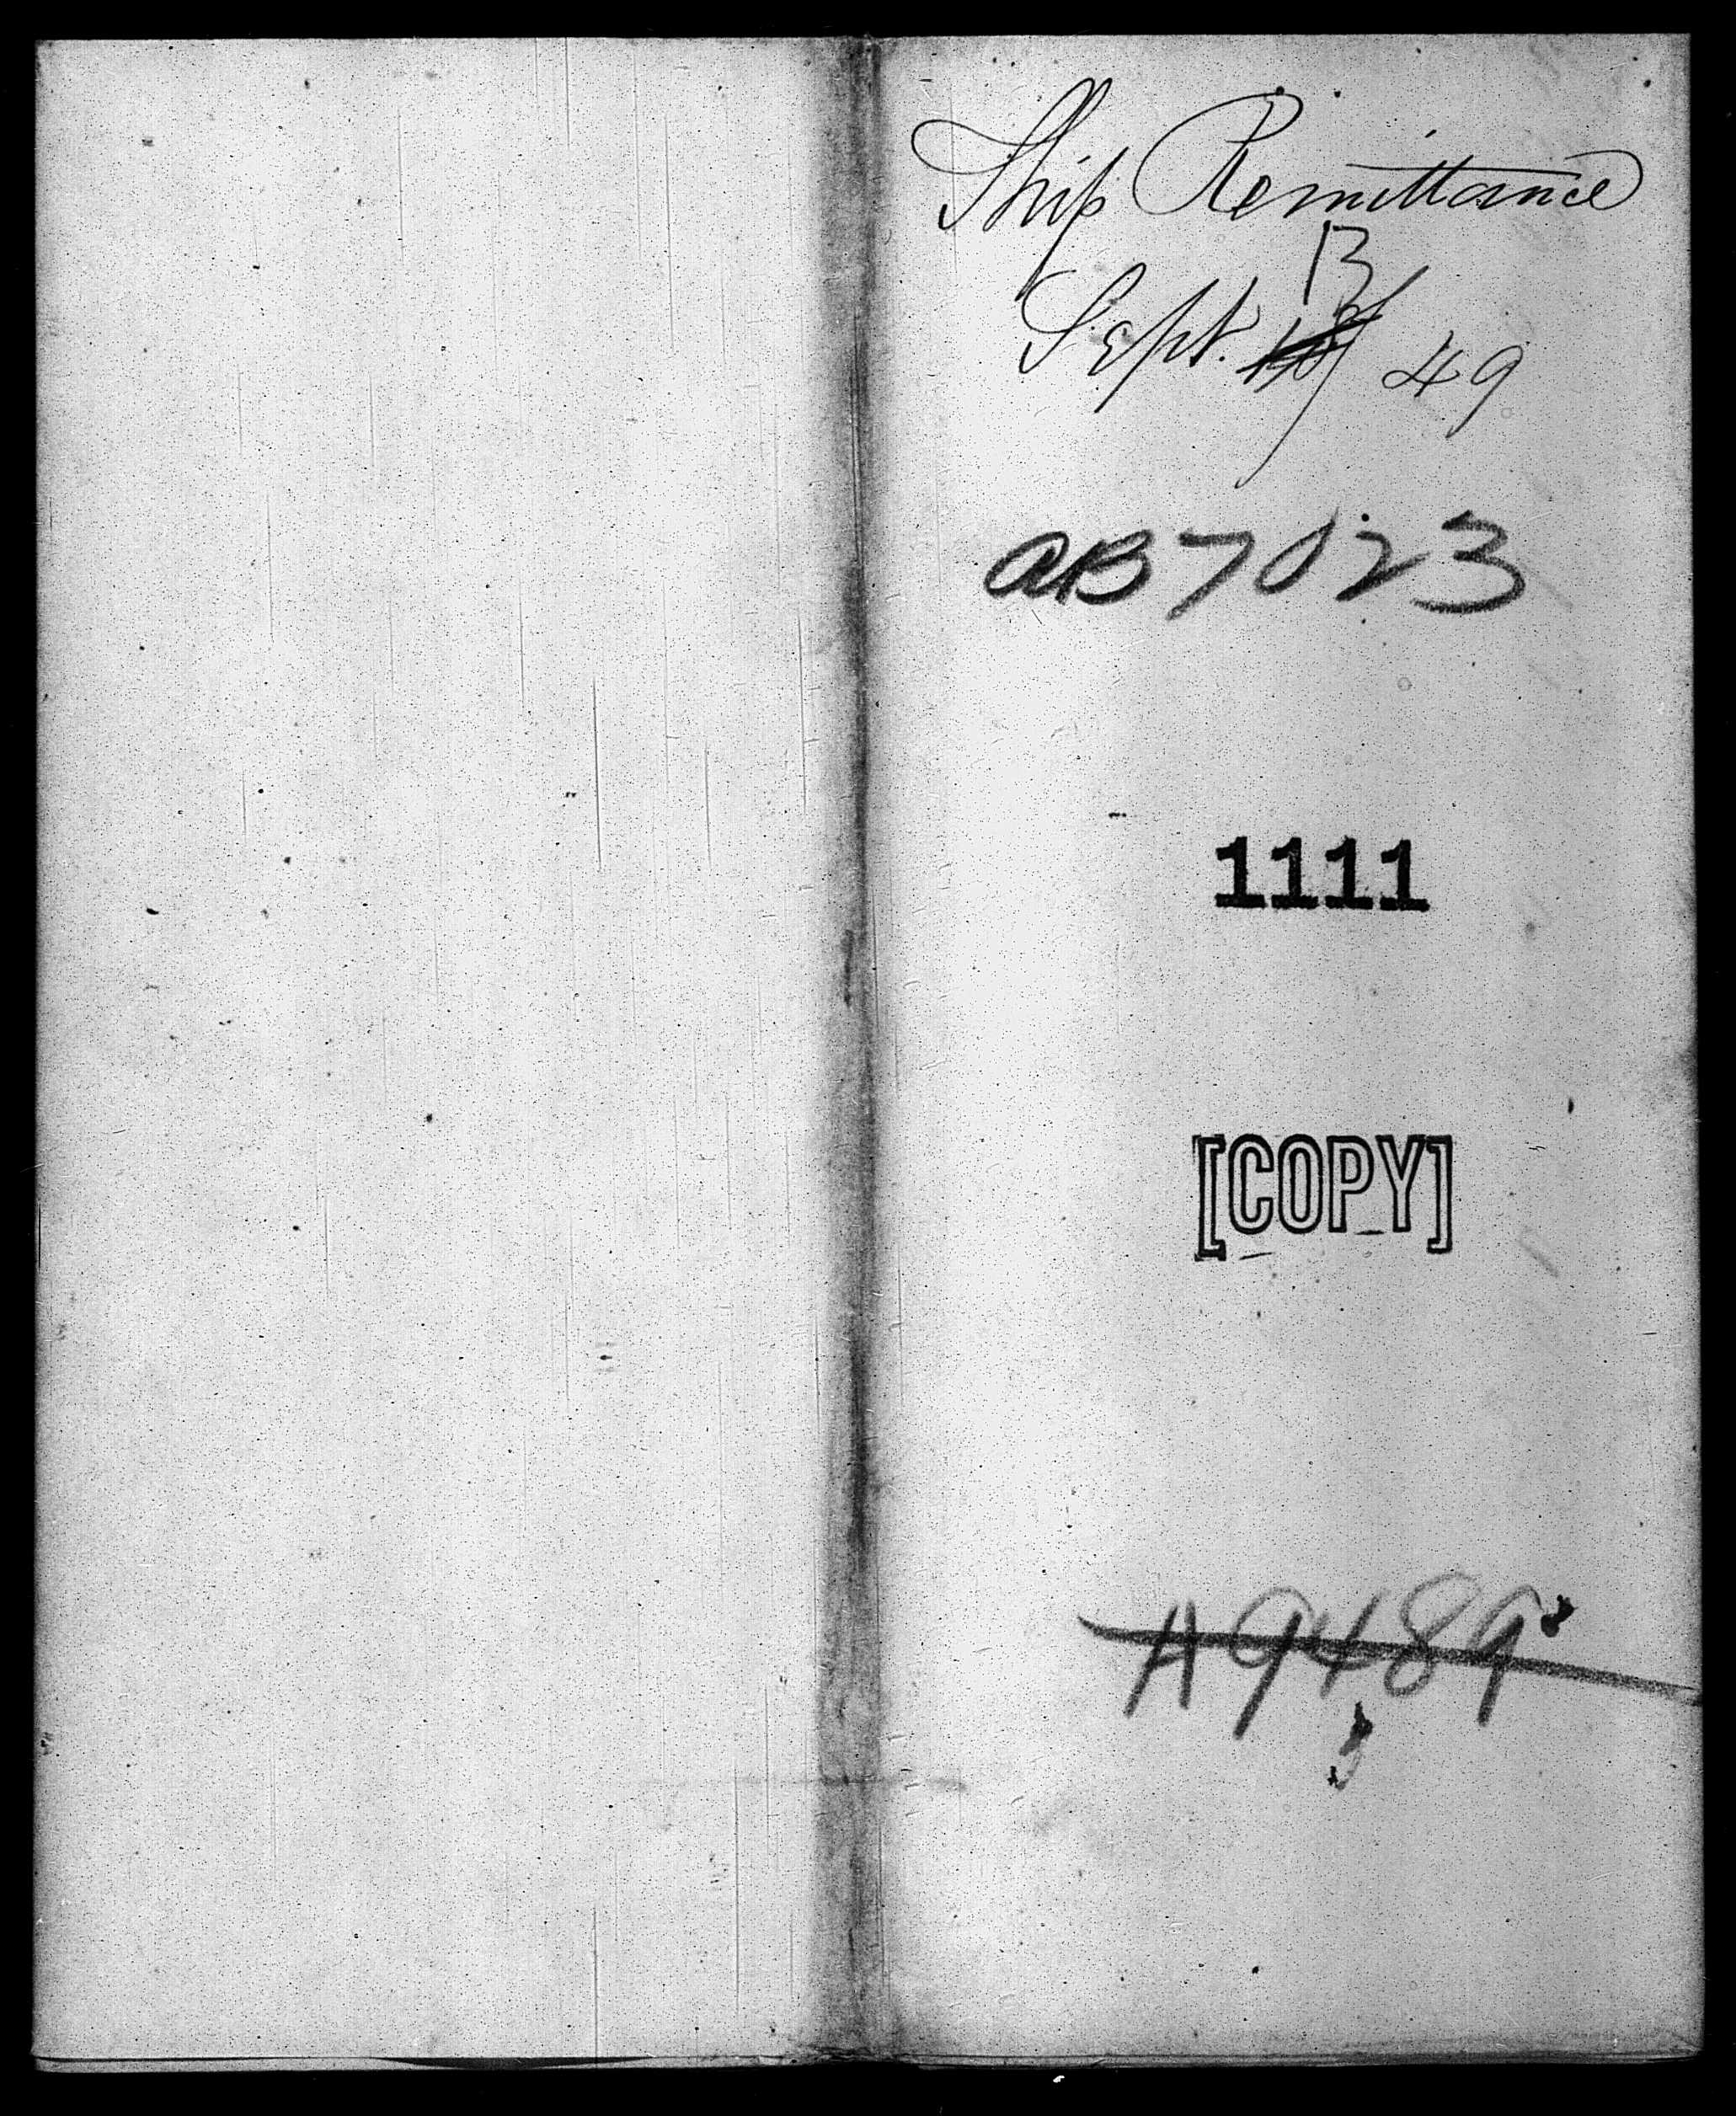 Ship Remittance
13
Sept. 49
AB 7023
1111
[COPY]
A9489